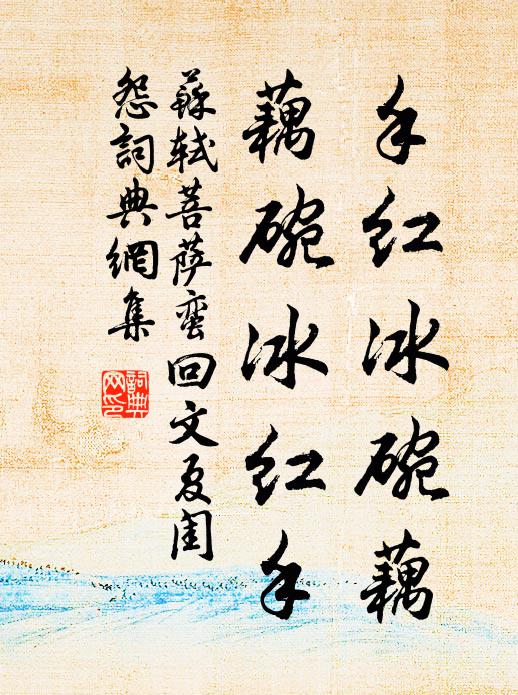 手红冰碗藕
藕碗冰红手
蘇軾菩萨蛮回文夏闺
怨詞典網集
詞典网印